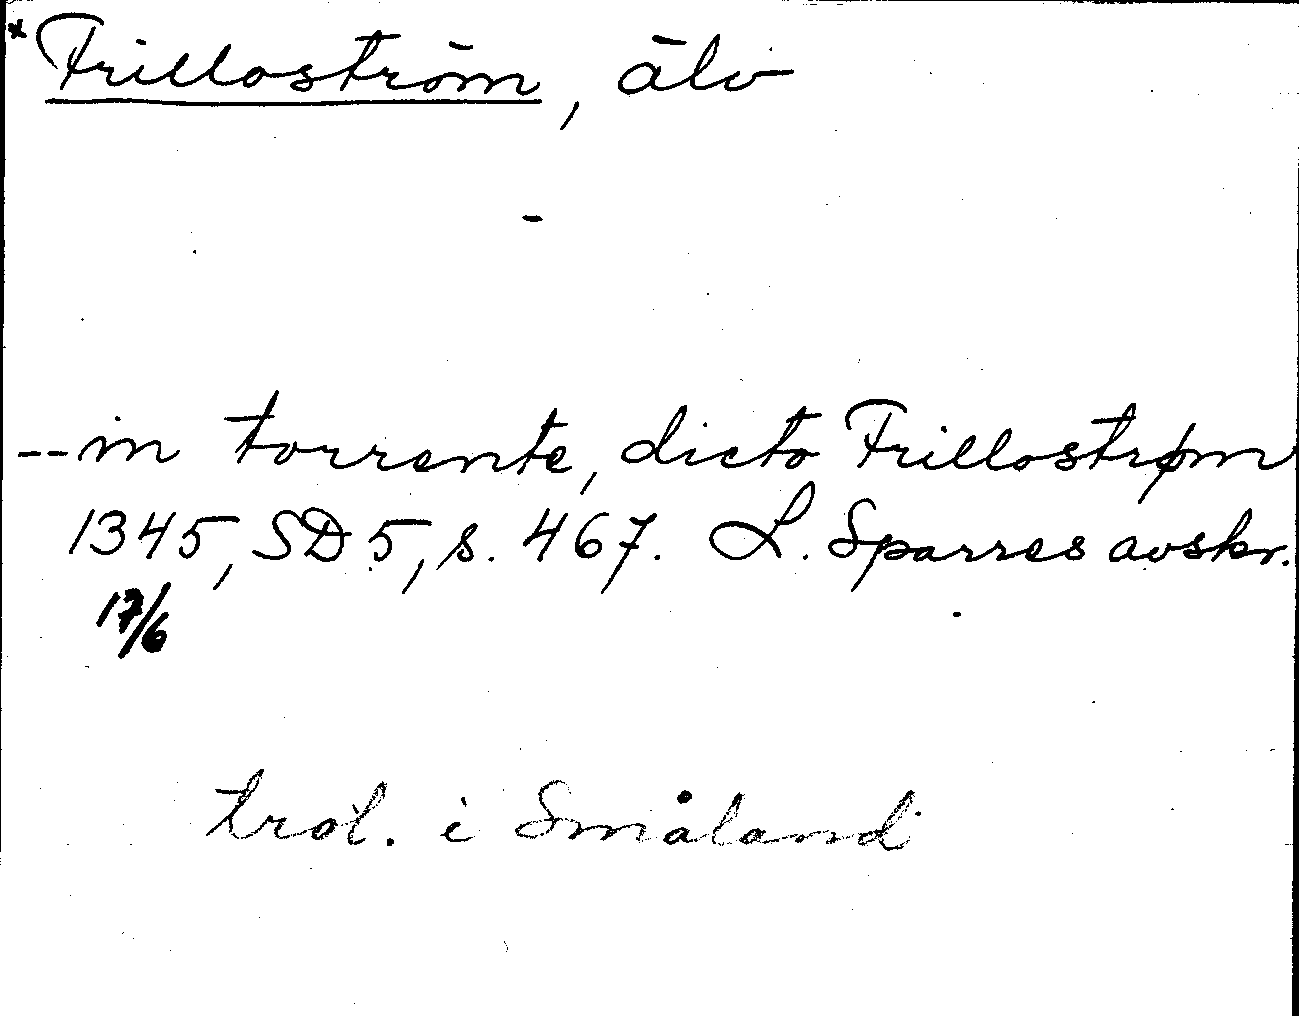 * Frilloström, älv
-- in torrente, dicto Frillostrøm
1345, SD 5, s. 467. L. Sparres avskr.
17/6
trol. i Småland